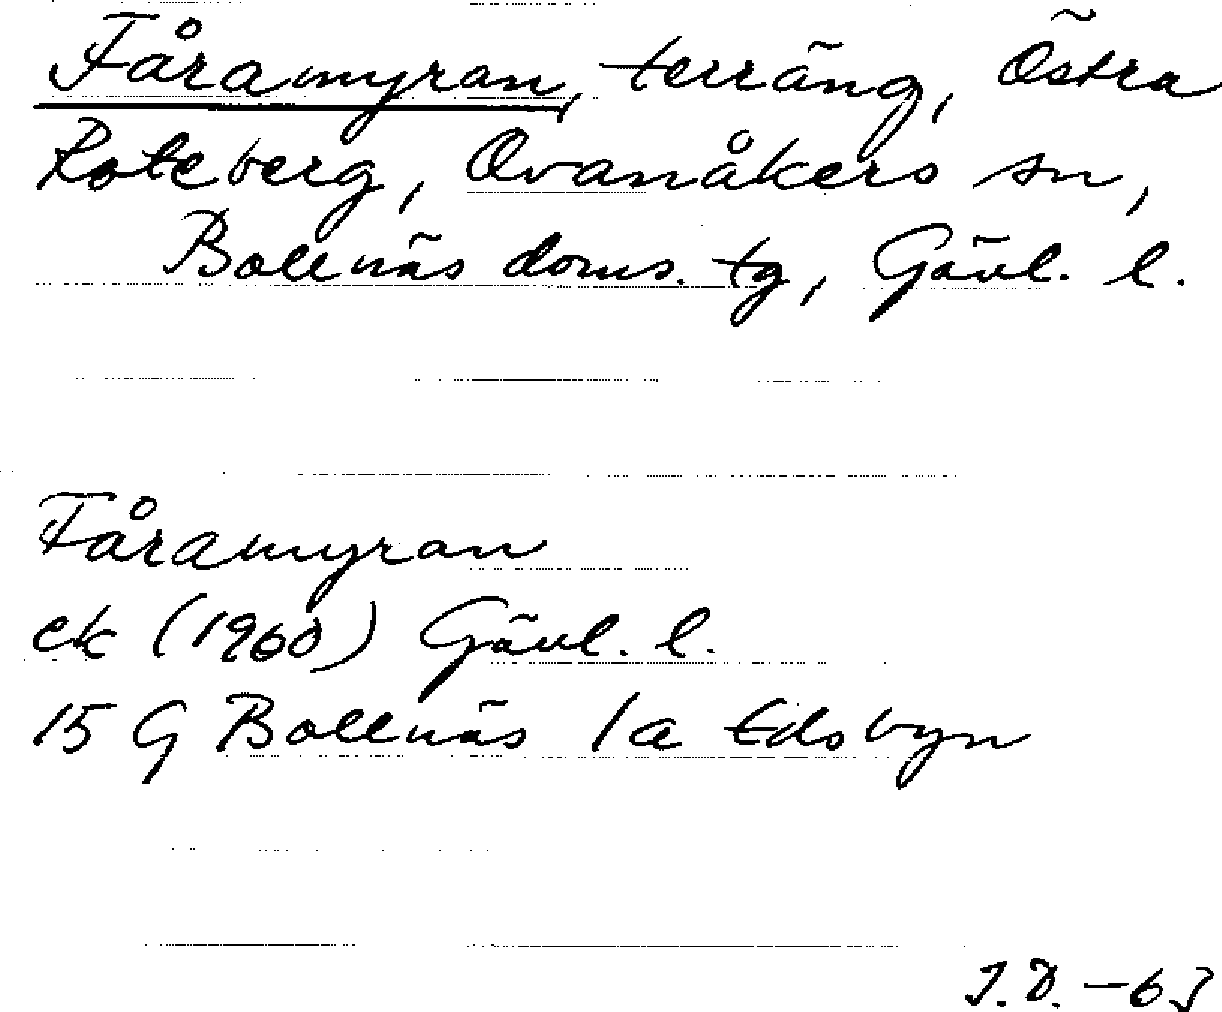 Fåramyran, terräng, Östra
Roteberg, Ovanåkers sn,
Bollnäs doms. tg, Gävl. l.
Fåramyran
ek (1960) Gävl. l.
15 G Bollnäs 1a Edsbyn
I.D. -63